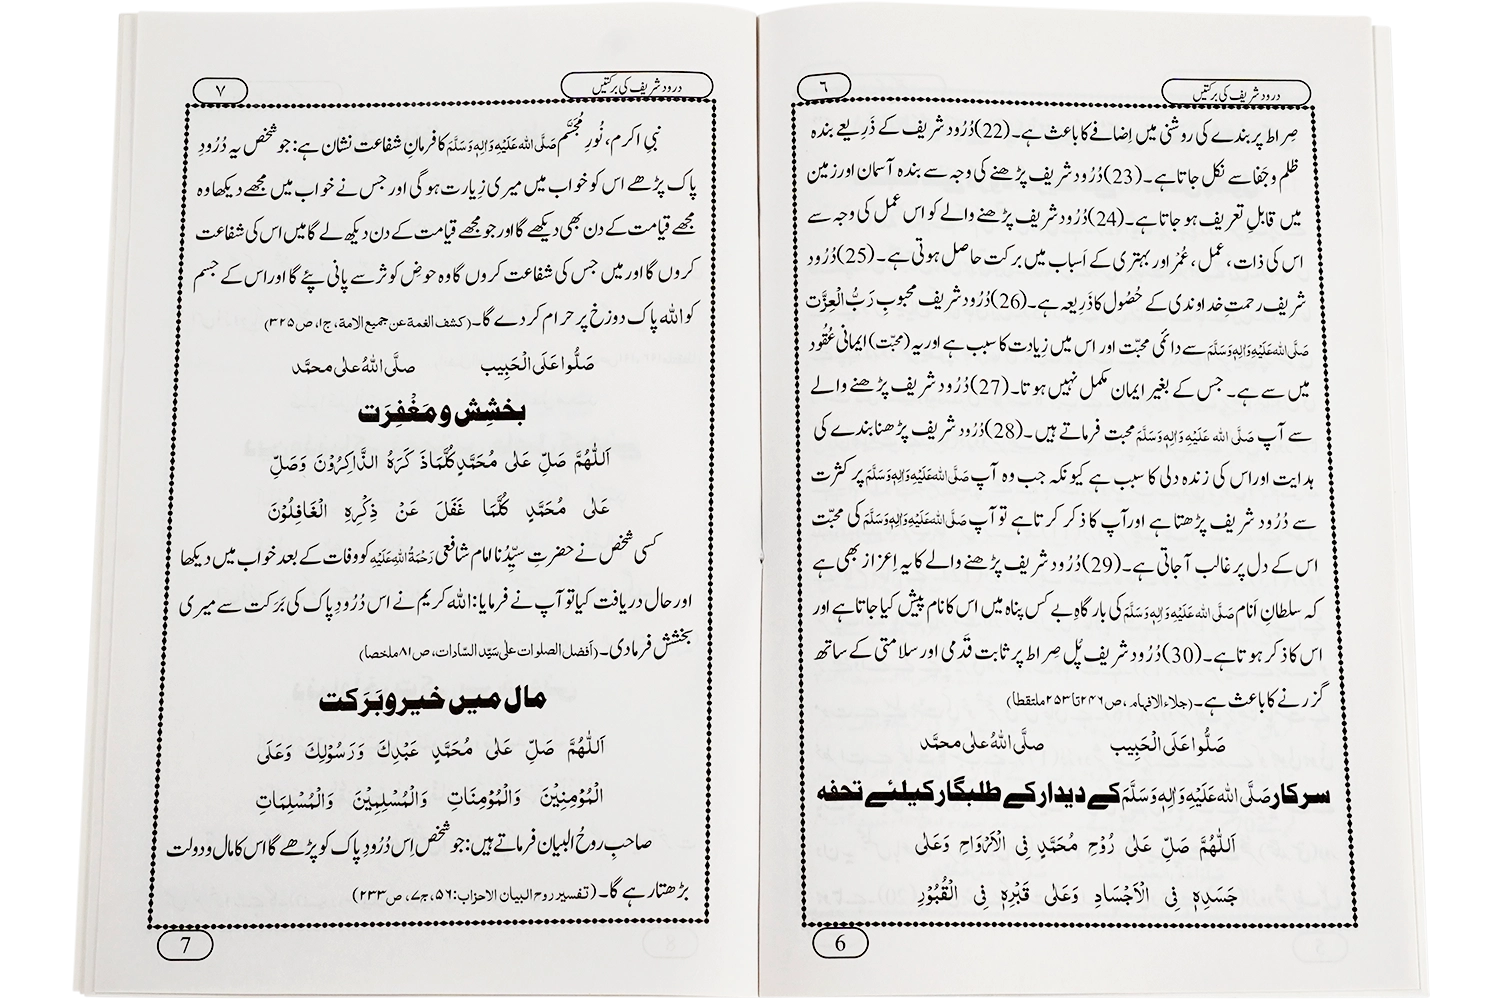 درود شریف کی برکتیں
٦
صِراط پر بندے کی روشنی میں اِضافے کا باعث ہے۔ (22) دُرُود شریف کے ذَرِیعے بندہ
ظلم و جَفا سے نکل جاتا ہے۔ (23) دُرُود شریف پڑھنے کی وجہ سے بندہ آسمان اور زمین
میں قابلِ تعریف ہو جاتا ہے۔ (24) دُرُود شریف پڑھنے والے کو اس عمل کی وجہ سے
اس کی ذات، عمل، عُمْر اور بہتری کے اَسباب میں برکت حاصل ہوتی ہے۔ (25) دُرُود
شریف رحمتِ خداوندی کے حُصُول کا ذَرِیعہ ہے۔ (26) دُرُود شریف محبوبِ رَبُّ الْعِزَّت
صَلَّی اللہ عَلَیْہِ وَاٰلِہٖ وَسَلَّمَ سے دائمی محبّت اور اس میں زِیادت کا سبب ہے اور یہ (محبّت) ایمانی عُقُود
میں سے ہے۔ جس کے بغیر ایمان مکمل نہیں ہوتا۔ (27) دُرُود شریف پڑھنے والے
سے آپ صَلَّی اللہ عَلَیْہِ وَاٰلِہٖ وَسَلَّمَ محبت فرماتے ہیں۔ (28) دُرُود شریف پڑھنا بندے کی
ہدایت اور اس کی زندہ دلی کا سبب ہے کیونکہ جب وہ آپ صَلَّی اللہ عَلَیْہِ وَاٰلِہٖ وَسَلَّمَ پر کثرت
سے دُرُود شریف پڑھتا ہے اور آپ کا ذکر کرتا ہے تو آپ صَلَّی اللہ عَلَیْہِ وَاٰلِہٖ وَسَلَّمَ کی محبّت
اس کے دل پر غالب آ جاتی ہے۔ (29) دُرُود شریف پڑھنے والے کا یہ اِعزاز بھی ہے
کہ سلطانِ اَنام صَلَّی اللہ عَلَیْہِ وَاٰلِہٖ وَسَلَّمَ کی بارگاہِ بے کس پناہ میں اس کا نام پیش کیا جاتا ہے اور
اس کا ذکر ہوتا ہے۔ (30) دُرُود شریف پُل صِراط پر ثابت قَدَمی اور سلامتی کے ساتھ
گزرنے کا باعث ہے۔ (جلاء الافہام، ص۲۴۶تا۲۵۳ملتقطا)
صَلُّوا عَلَی الْحَبِیب صلَّی اللہُ علٰی محمَّد
سرکار صَلَّی اللہ عَلَیْہِ وَاٰلِہٖ وَسَلَّمَ کے دیدار کے طلبگار کیلئے تحفہ
اَللّٰھُمَّ صَلِّ عَلٰی رُوْحِ مُحَمَّدٍ فِی الْاَرْوَاحِ وَعَلٰی
جَسَدِہٖ فِی الْاَجْسَادِ وَعَلٰی قَبْرِہٖ فِی الْقُبُوْرِ
6
درود شریف کی برکتیں
۷
نبیِ اکرم، نُورِ مُجَسَّم صَلَّی اللہ عَلَیْہِ وَاٰلِہٖ وَسَلَّمَ کا فرمانِ شفاعت نشان ہے: جو شخص یہ دُرُودِ
پاک پڑھے اس کو خواب میں میری زِیارت ہوگی اور جس نے خواب میں مجھے دیکھا وہ
مجھے قیامت کے دن بھی دیکھے گا اور جو مجھے قیامت کے دن دیکھ لے گا میں اس کی شفاعت
کروں گا اور میں جس کی شفاعت کروں گا وہ حوضِ کوثر سے پانی پئے گا اور اس کے جسم
کو اللہ پاک دوزخ پر حرام کر دے گا۔ (کشف الغمة عن جمیع الامة، ج۱، ص۳۲۵)
صَلُّوا عَلَی الْحَبِیب صلَّی اللہُ علٰی محمَّد
بخشِش و مَغْفِرَت
اَللّٰھُمَّ صَلِّ عَلٰی مُحَمَّدٍ کُلَّمَا ذَکَرَہُ الذَّاکِرُوْنَ وَصَلِّ
عَلٰی مُحَمَّدٍ کُلَّمَا غَفَلَ عَنْ ذِکْرِہِ الْغَافِلُوْنَ
کسی شخص نے حضرتِ سیِّدُنا امام شافعی رَحْمَۃُ اللہِ عَلَیْہِ کو وفات کے بعد خواب میں دیکھا
اور حال دریافت کیا تو آپ نے فرمایا: اللہ کریم نے اس دُرُودِ پاک کی بَرَکت سے میری
بخشش فرما دی۔ (افضل الصلوات علی سیّد السّادات، ص۸۱ملخصا)
مال میں خیر و بَرَکت
اَللّٰھُمَّ صَلِّ عَلٰی مُحَمَّدٍ عَبْدِكَ وَرَسُوْلِكَ وَعَلَی
الْمُؤْمِنِیْنَ وَالْمُؤْمِنَاتِ وَالْمُسْلِمِیْنَ وَالْمُسْلِمَاتِ
صاحبِ روحُ البیان فرماتے ہیں: جو شخص اِس دُرُودِ پاک کو پڑھے گا اس کا مال و دولت
بڑھتا رہے گا۔ (تفسیر روح البیان الاحزاب: ۵۶، ج۷، ص۲۳۳)
7